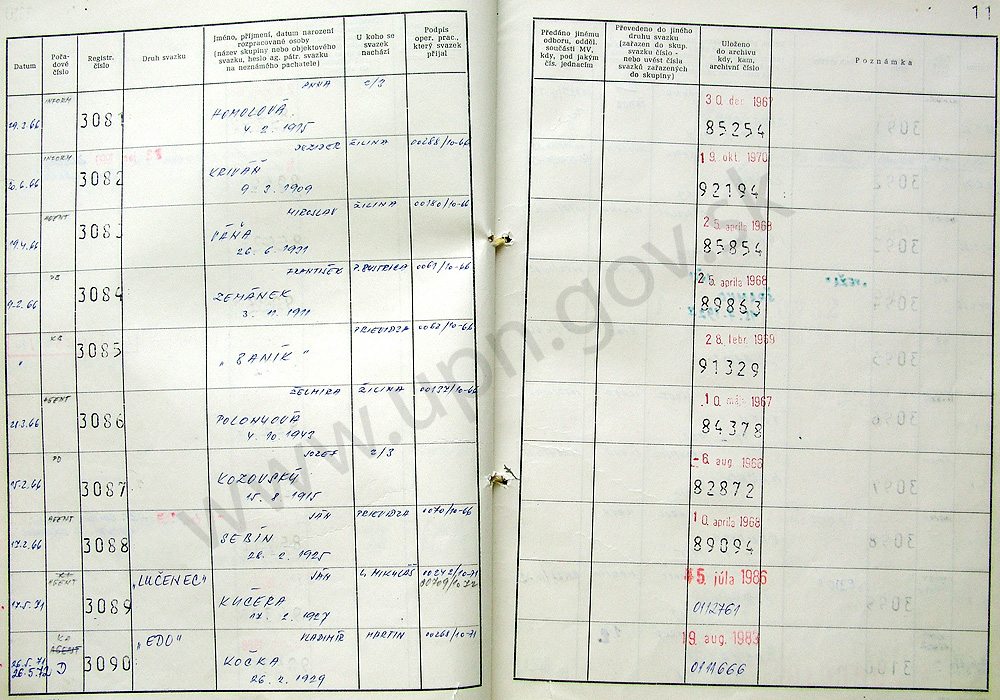 11
Datum
Pořa-
dové
číslo
Registr.
číslo
Druh svazku
Jméno, příjmení, datum narození
rozpracované osoby
(název skupiny nebo objektového
svazku, heslo ag. pátr. svazku
na neznámého pachatele)
U koho se
svazek
nachází
Podpis
oper. prac.,
který svazek
přijal
Předáno jinému
odboru, odděl.
součásti MV.
kdy, pod jakým
čís. jednacím
Převedeno do jiného
druhu svazku
(zařazen do skup.
svazku číslo -
nebo uvést čísla
svazků zařazených
do skupiny)
Uloženo
do archivu
kdy, kam,
archivní číslo
Poznámka
INFORM ANNA 2/3
3081 HOMOLOVÁ 30. dec 1967
4. 2. 1915 85254
INFORM ŽILINA 00288/10-66
20.6.66 3082 KRIVÁŇ 19. okt. 1970
9. 2. 1909 92194
AGENT MIROSLAV ŽILINA 00180/10-66
19.4.66 3083 VÁŇA 25. apríla 1968
26. 6. 1921 85854
FRANTIŠEK P. BYSTRICA 0061/10-66
9.2.66 3084 ZEMÁNEK 25. apríla 1968
3. 11. 1921 89863
PRIEVIDZA 0062/10-66
3085 „BANÍK" 28. febr. 1969
91329
AGENT ŽELMIRA ŽILINA 00137/10-66
21.3.66 3086 10. 1967
4. 10. 1942 84378
PO JOZEF 2/3
15.2.66 3087 KOZOVSKÝ -6. aug. 1966
15. 8. 1915 82872
AGENT JÁN PRIEVIDZA 0070/10-66
17.2.66 3088 SEBÍN 10. apríla 1968
28. 2. 1925 89094
AGENT „LUČENEC" JÁN L. MIKULÁŠ 00242/10-71
00709/10-72
17.5.71 3089 KUČERA 15. júla 1986
17. 2. 1927 0112761
AGENT „EDO" VLADIMÍR MARTIN 00268/10-71
26.5.71
26.5.72 D 3090 KOČKA 19. aug. 1983
26. 2. 1929 0111666
www.upn.gov.sk